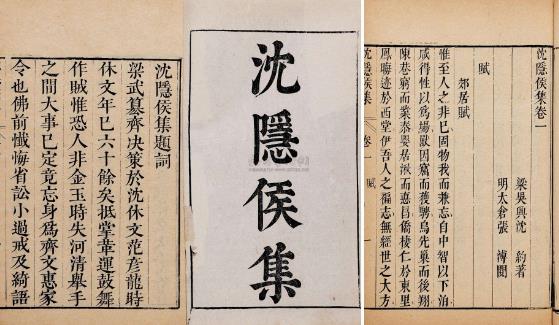 沈隱侯集題詞
梁武篡齊決策於沈休文范彥龍時
休文年已六十餘矣抵掌革運鼓舞
作賊惟恐人非金玉時失河清舉手
之間大事已定竟忘身為齊文惠家
令也佛前懺悔省訟小過戒及綺語
沈隱侯集
沈隱侯集卷一
梁吳興沈 約著
明太倉張 溥閱
賦
郊居賦
惟至人之非已固物我而兼忘自中智以下洎
咸得性以為場獸因窟而獲騁鳥先巢而後翔
陳巷窮而業泰嬰居湫而德昌僑棲仁於東里
鳳晦迹於西堂伊吾人之褊志無經世之大方
沈隱侯集 卷一 賦